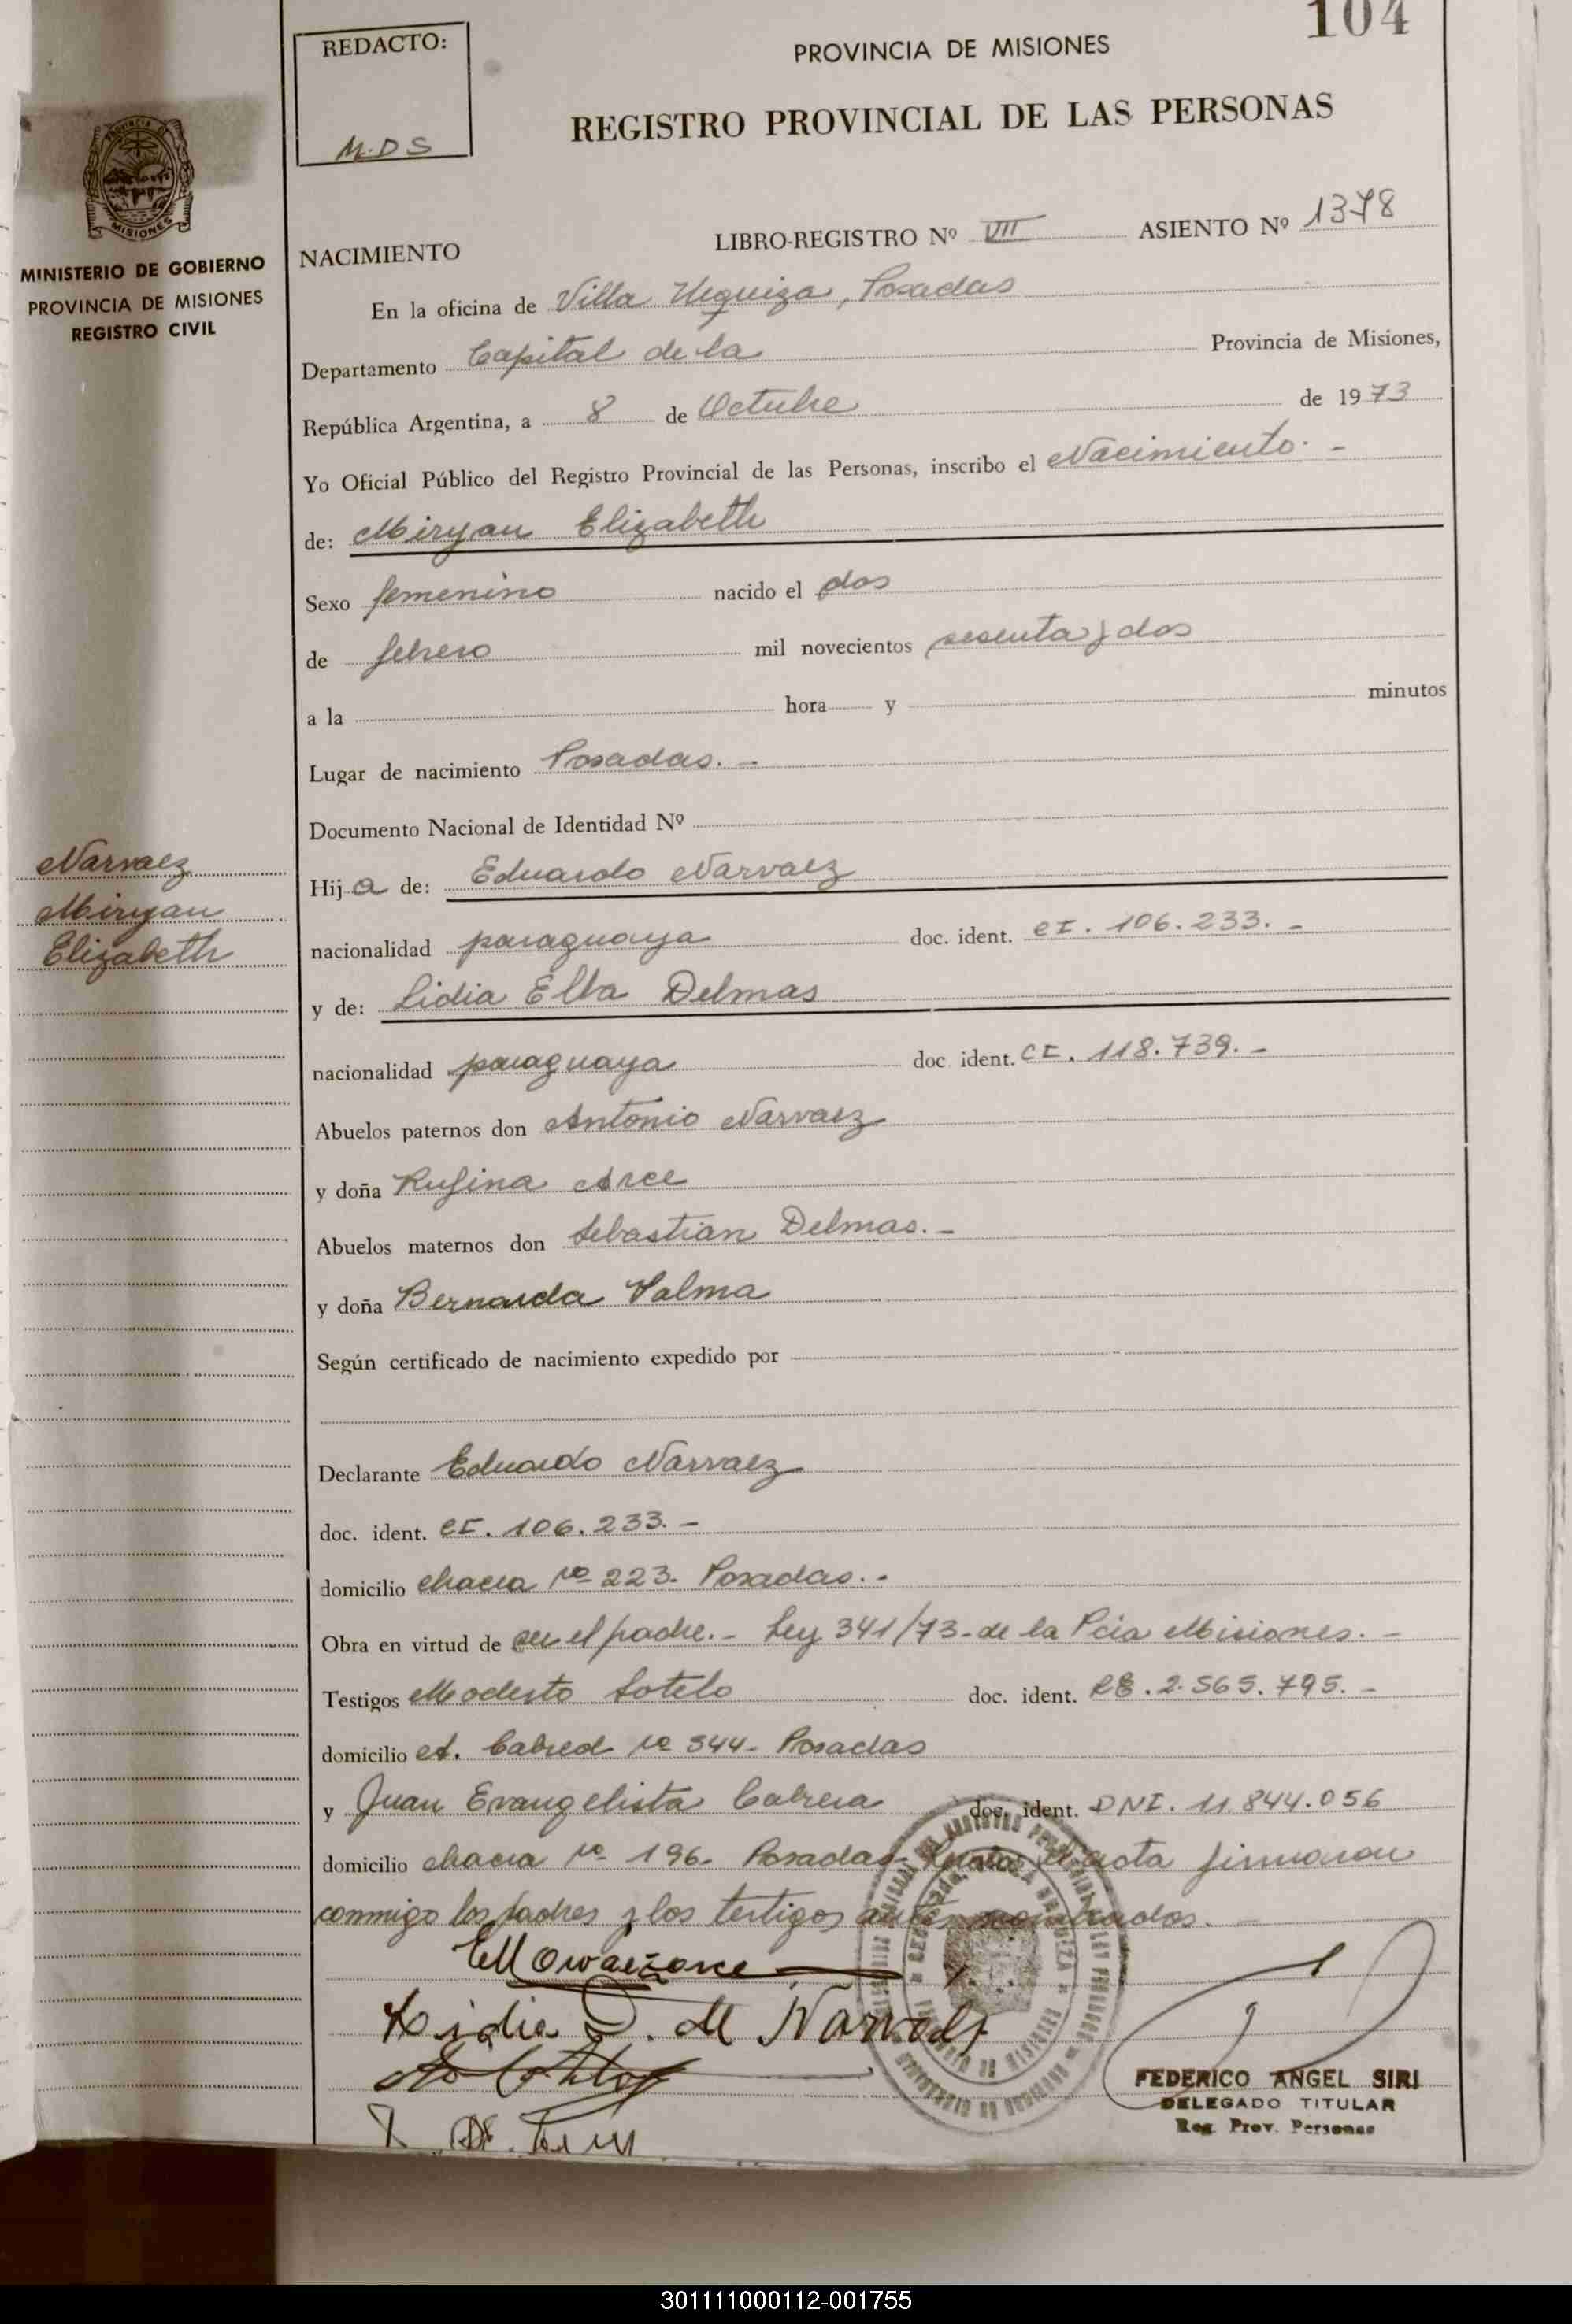 104
REDACTO:
M.D S
PROVINCIA DE MISIONES
REGISTRO PROVINCIAL DE LAS PERSONAS
MISIONES
MINISTERIO DE GOBIERNO
PROVINCIA DE MISIONES
REGISTRO CIVIL
NACIMIENTO LIBRO-REGISTRO Nº VII ASIENTO Nº 1378
En la oficina de Villa Urquiza, Posadas
Departamento Capital de la Provincia de Misiones,
República Argentina, a 8 de Octubre de 1973
Yo Oficial Público del Registro Provincial de las Personas, inscribo el Nacimiento. -
de: Miryan Elizabeth
Sexo femenino nacido el dos
de febrero mil novecientos sesenta y dos
a la hora y minutos
Lugar de nacimiento Posadas. -
Documento Nacional de Identidad Nº
Narvaez
Miryan
Elizabeth
Hija de: Eduardo Narvaez
nacionalidad paraguaya doc. ident. CI. 106.233. -
y de: Lidia Elba Delmas
nacionalidad paraguaya doc. ident. CI. 118.739. -
Abuelos paternos don Antonio Narvaez
y doña Rufina Arce
Abuelos maternos don Sebastian Delmas. -
y doña Bernarda Valma
Según certificado de nacimiento expedido por
Declarante Eduardo Narvaez
doc. ident. CI. 106.233. -
domicilio chacra nº 223. Posadas. -
Obra en virtud de ser el padre. - Ley 341/73 - de la Pcia Misiones. -
Testigos Modesto Sotelo doc. ident. 2.565.795. -
domicilio Cabred nº 344 - Posadas
y Juan Evangelista Cabrera doc. ident. DNI. 11.844.056
domicilio chacra nº 196. Posadas acta firmaron
conmigo los padres y los testigos antes nombrados. -
Lidia D. de Narvaez
FEDERICO ANGEL SIRI
DELEGADO TITULAR
Reg. Prov. Personas
301111000112-001755